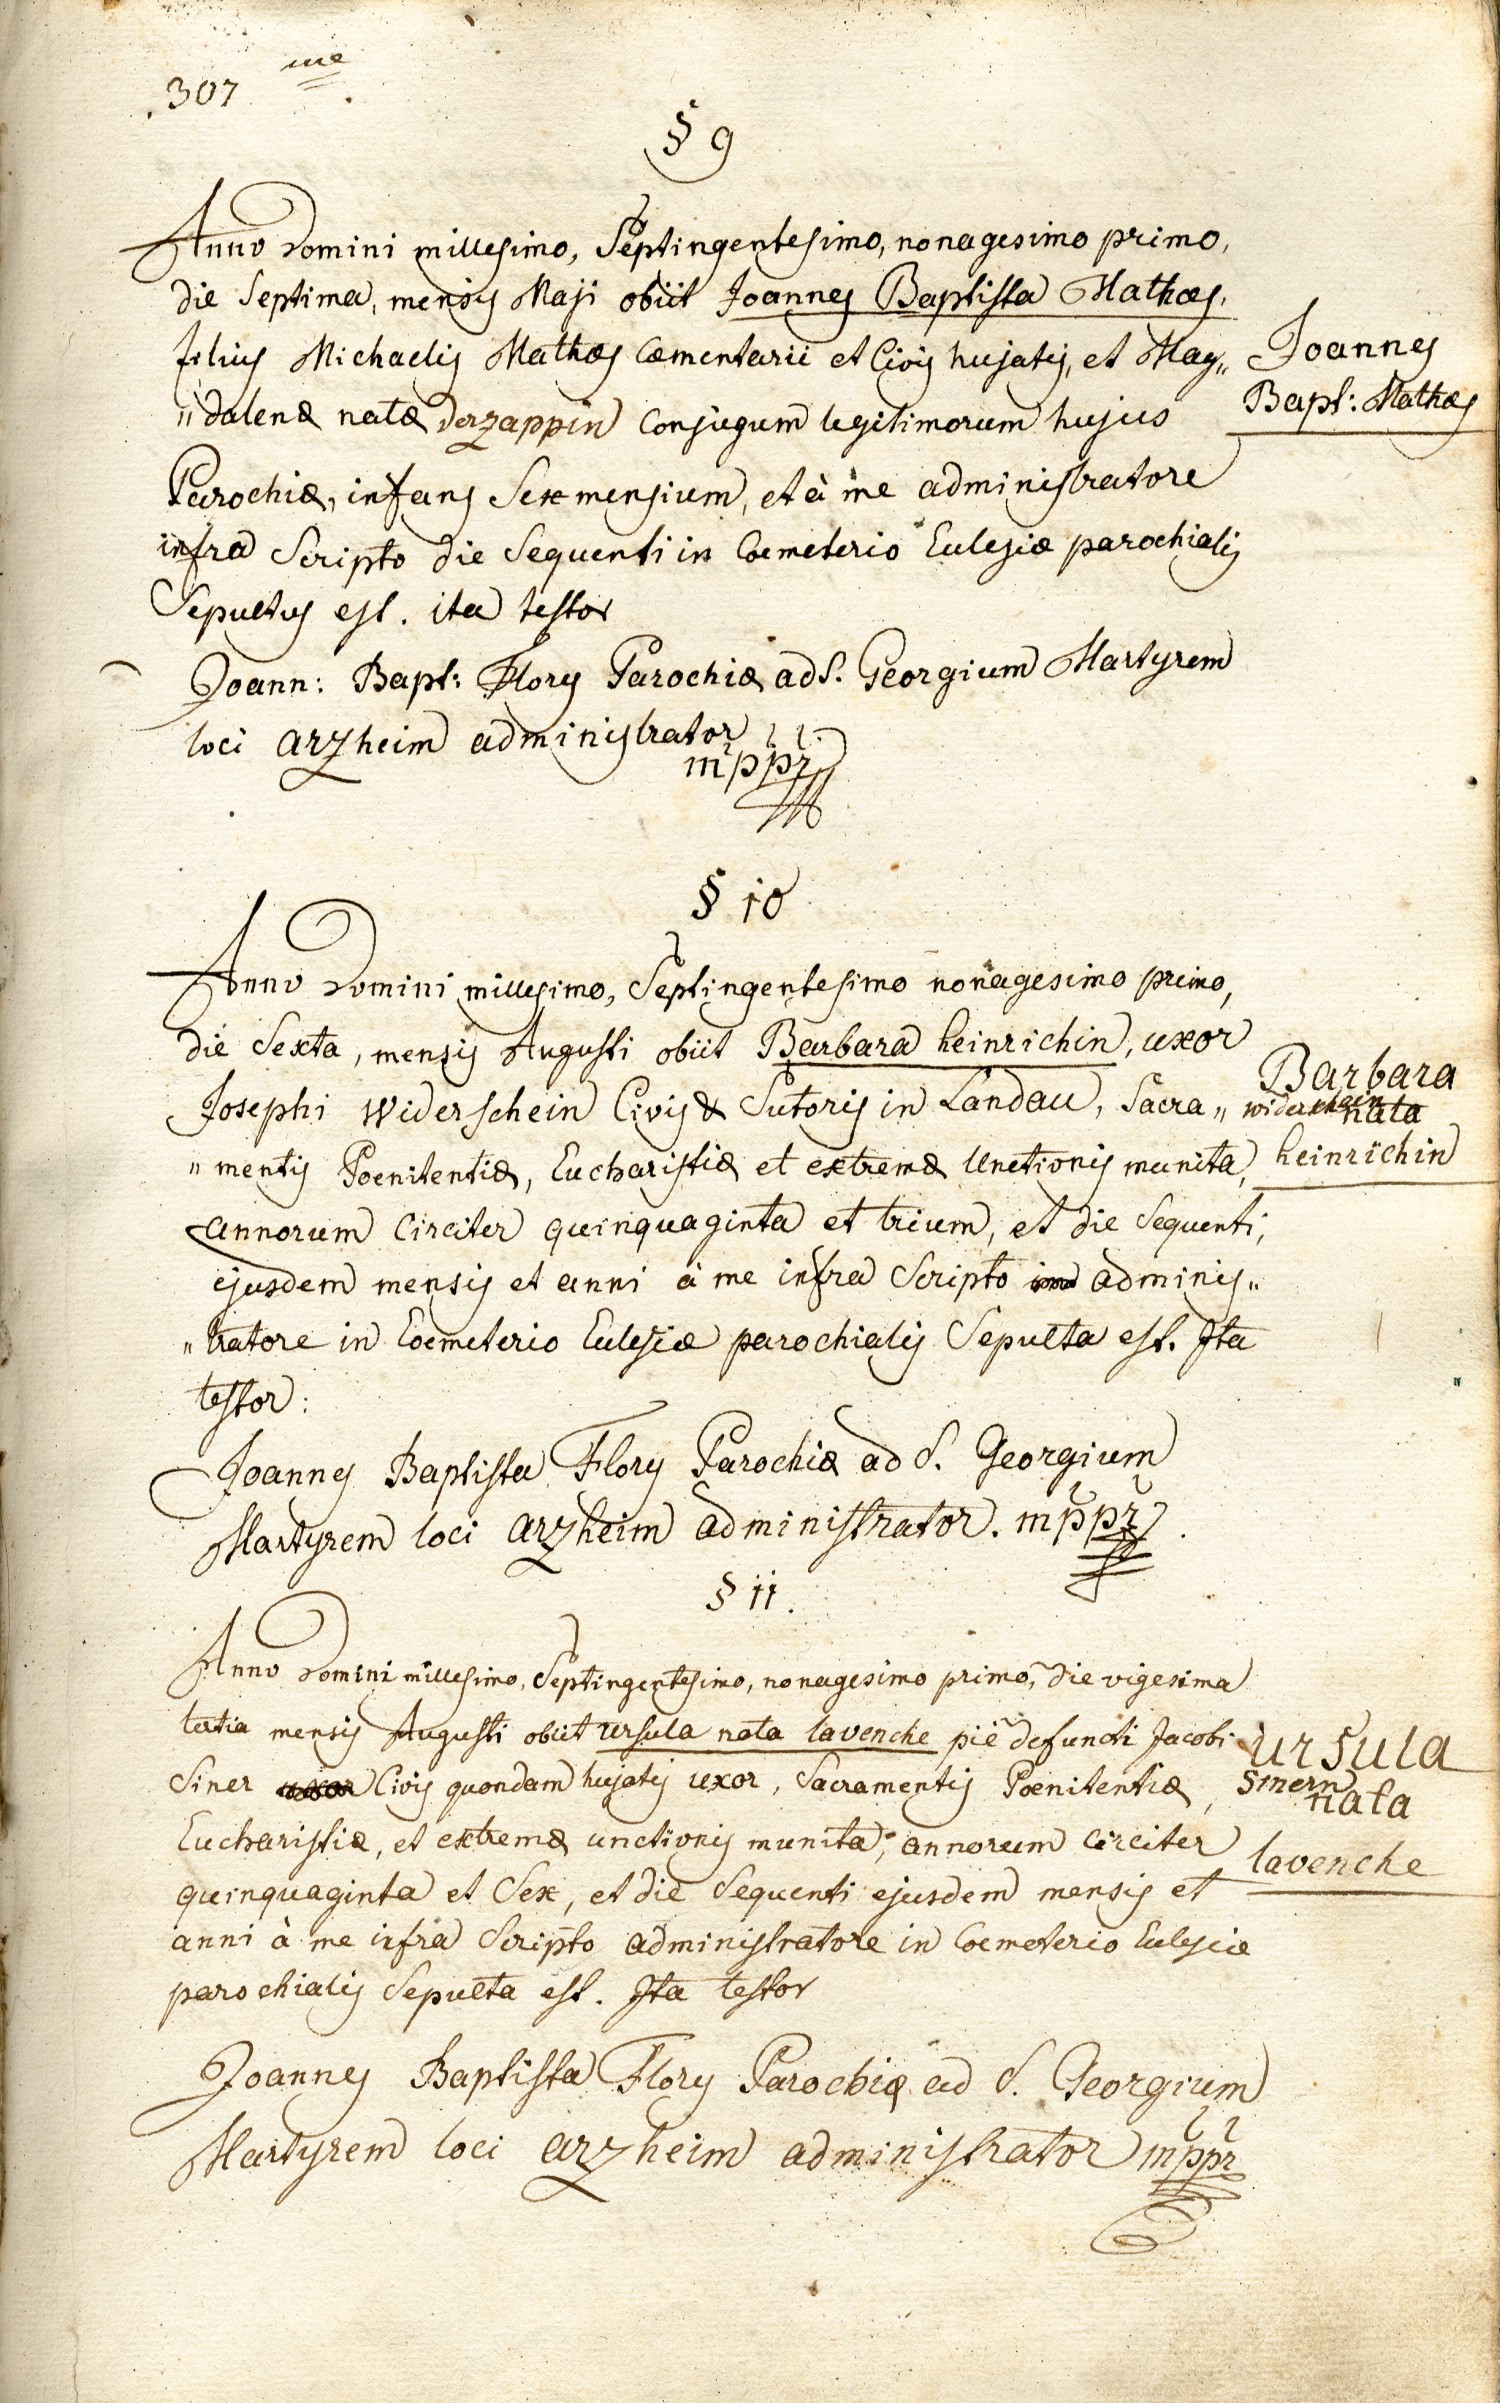 307 me
§ 9
Anno Domini millesimo, Septingentesimo, nonagesimo primo,
die Septima, mensis Maji obiit Joannes Baptista Mathæs,
filius Michaelis Mathæs Cæmentarii et Civis hujatis, et Mag„
„dalenæ natæ Derzappin Conjugum legitimorum hujus
Parochiæ, infans Sex mensium, et à me administratore
infra Scripto die Sequenti in Coemeterio Eclesiæ parochialis
Sepultus est. ita testor
Joann: Bapt: Flory Parochiæ ad S. Georgium Martyrem
loci arzheim administrator
mppr
Joannes
Bapt: Mathæs
§ 10
Anno Domini millesimo, Septingentesimo nonagesimo primo,
die Sexta, mensis Augusti obiit Barbara heinrichin, uxor
Josephi Widerschein Civis & Sutoris in Landau, Sacra„
„mentis Poenitentiæ, Eucharistiæ et extremæ Unctionis munita,
annorum Circiter quinquaginta et trium, et die Sequenti,
ejusdem mensis et anni à me infra Scripto adminis„
„tratore in Coemeterio Eclesiæ parochialis Sepulta est. Ita
testor:
Joannes Baptista Flory Parochiæ ad S. Georgium
Martyrem loci arzheim administrator. mppr
Barbara
nata
heinrichin
§ 11.
Anno Domini millesimo, Septingentesimo, nonagesimo primo, die vigesima
tertia mensis Augusti obiit ursula nata lavenche piè defuncti Jacobi
Siner Civis quondam hujatis uxor, Sacramentis Poenitentiæ,
Eucharistiæ, et extremæ unctionis munita, annorum Circiter
quinquaginta et Sex, et die Sequenti ejusdem mensis et
anni à me infra Scripto administratore in Coemeterio Eclesiæ
parochialis Sepulta est. Ita testor
Joannes Baptista Flory Parochiæ ad S. Georgium
Martyrem loci arzheim administrator mppr
ursula
Sinern
nata
lavenche